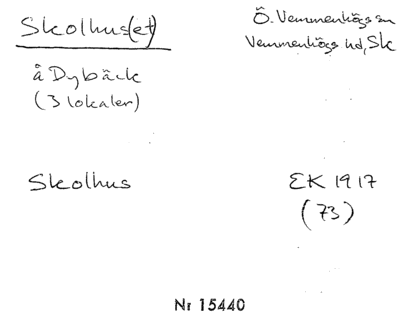 Skolhus(et)
Ö. Vemmenhögs sn
Vemmenhögs hd, Sk
å Dybäck
(3 lokaler)
Skolhus
EK 1917
(73)
Nr 15440